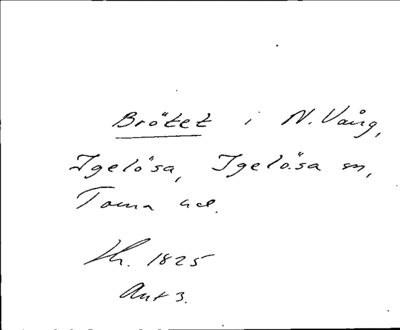 Brötet i N. Vång,
Igelösa, Igelösa sn,
Torna hd.
Lh. 1825
Ant 3.